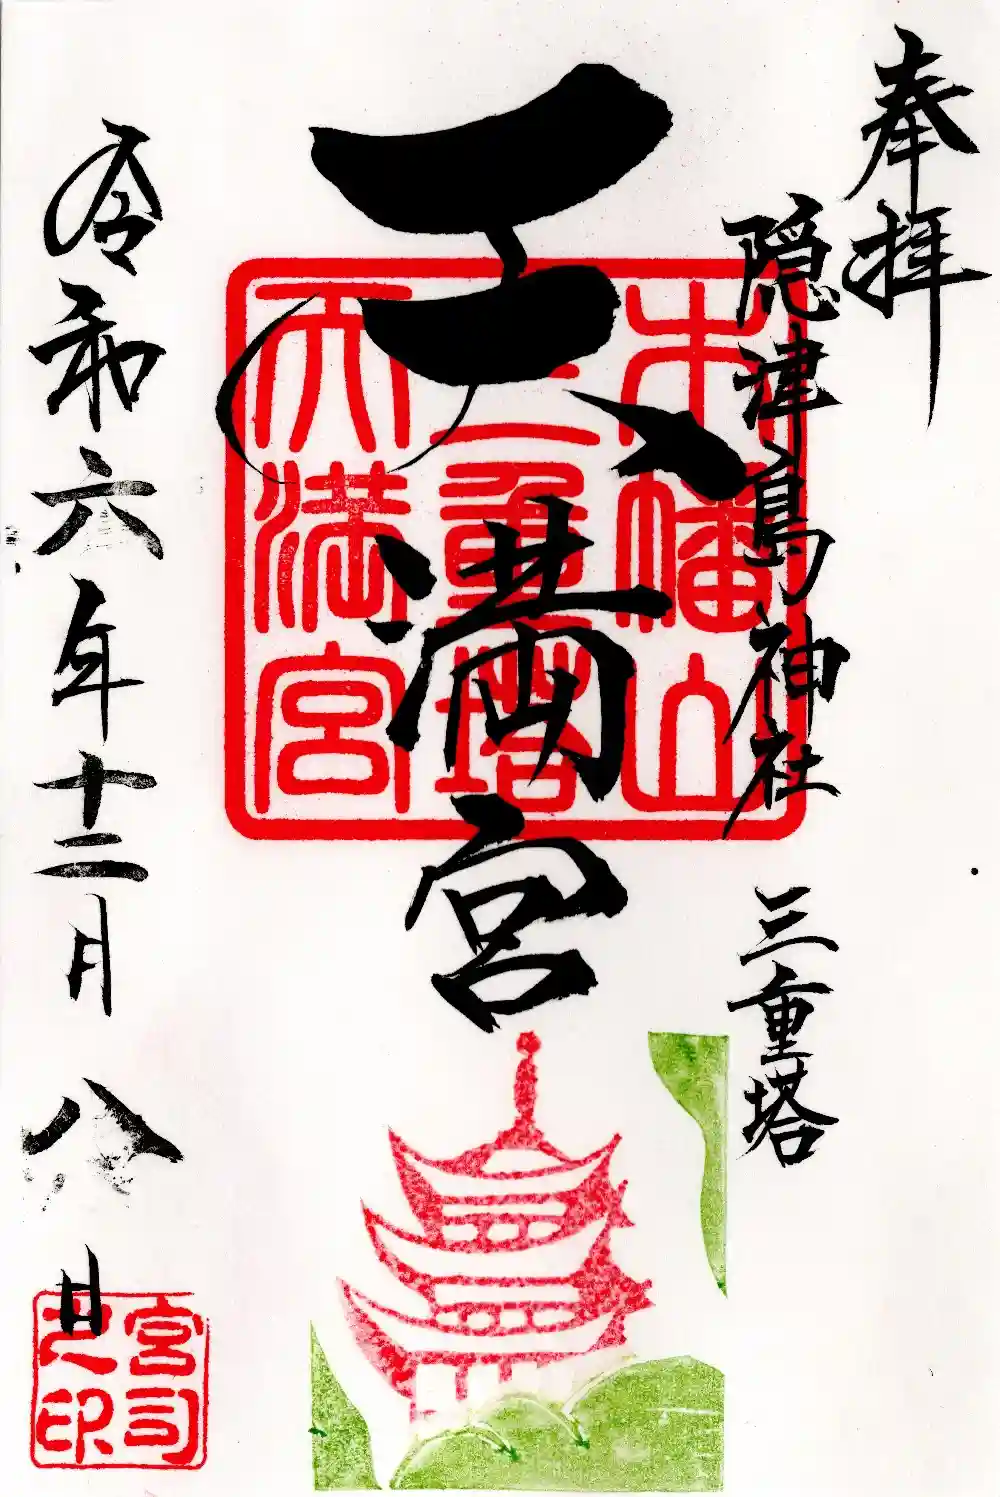 奉拝
隠津島神社 三重塔
天満宮
木幡山
三重塔
天満宮
令和六年十二月八日
宮司
之印